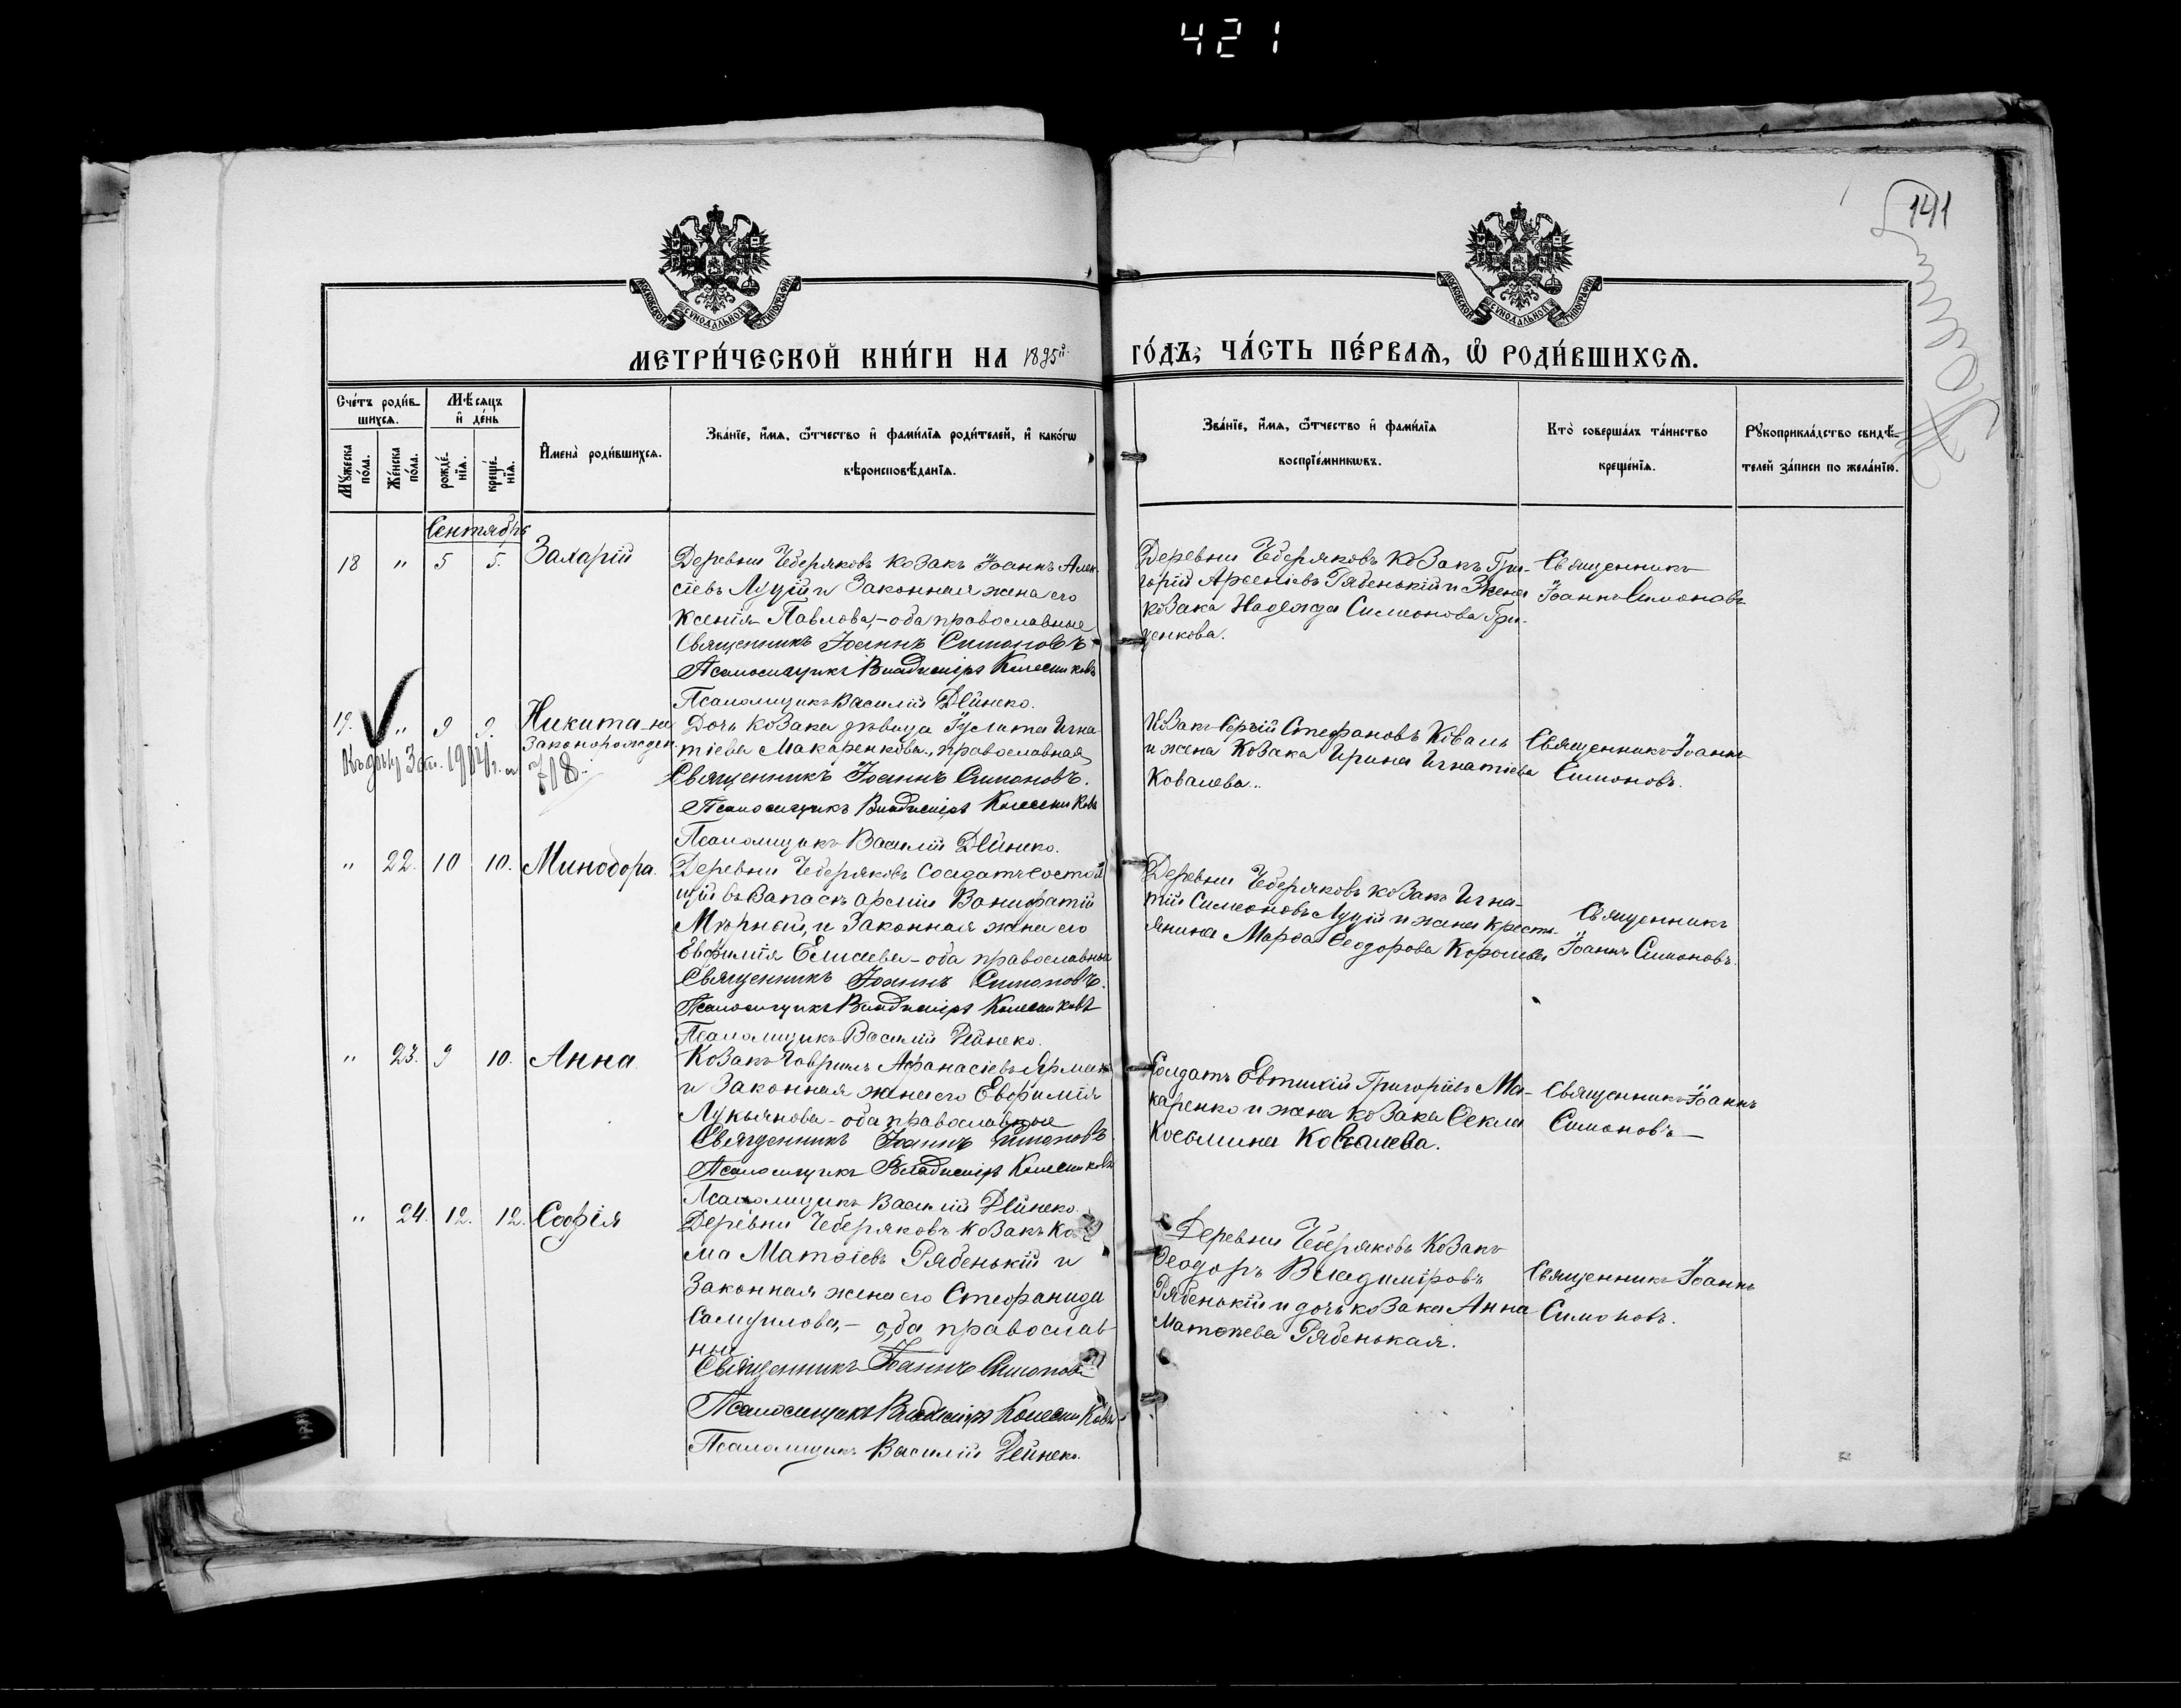 421
141
МОСКОВСКОЙ СѴНОДАЛЬНОЙ ТИПОГРАФІИ
МОСКОВСКОЙ СѴНОДАЛЬНОЙ ТИПОГРАФІИ
МЕТРИ́ЧЕСКОЙ КНИ́ГИ НА 1895й
ГО́ДЪ, ЧА́СТЬ ПЕ́РВАЯ, Ѡ РОДИ́ВШИХСЯ.
Сче́тъ роди́в-
шихся.
Мꙋ́жеска по́ла.
Же́нска по́ла.
Мѣ́сяцъ
и де́нь
рожде́-
нїя.
креще́-
нїя.
И҆мена̀ роди́вшихся.
Зва́нїе, и҆́мя, ѻ҆́тчество и҆ фами́лїя роди́телей, и҆ како́гѡ
вѣроисповѣ́данїя.
Зва́нїе, и҆́мя, ѻ҆́тчество и҆ фами́лїя
воспрїе́мниковъ.
Кто̀ соверша́лъ та́инство
креще́нїя.
Рꙋкоприкла́дство свидѣ́-
телей за́писи по жела́нїю.
Сентябрь
18 " 5 5. Захарій
Деревни Чеберяковъ козакъ Іоаннъ Алек-
сіевъ Луцій и законная жена его
Ксенія Павлова, - оба православные
Священникъ Іоаннъ Симоновъ
Псаломщикъ Владиміръ Колесниковъ
Псаломщикъ Василій Дейнеко.
Деревни Чеберяковъ козакъ Гри-
горій Арсеніевъ Рябенькій и жена
козака Надежда Симеонова Гри-
ценкова.
Священникъ
Іоаннъ Симоновъ
19. " 9 9. Никита - не
законорожден.
718.
Дочь козака дѣвица Гулита Игна
тіева Макаренкова, православная
Священникъ Іоаннъ Симоновъ.
Псаломщикъ Владиміръ Колесниковъ
Псаломщикъ Василій Дейнеко.
Козакъ Сергій Стефановъ Коваль
и жена козака Ирина Игнатіева
Ковалева.
Священникъ Іоаннъ
Симоновъ.
" 22. 10 10. Минодора.
Деревни Чеберяковъ солдатъ состоя
щій въ запасѣ арміи Вонифатій
Мѣрный, и законная жена его
Евфимія Елисеева - оба православные
Священникъ Іоаннъ Симоновъ.
Псаломщикъ Владиміръ Колесниковъ
Псаломщикъ Василій Дейнеко.
Деревни Чеберяковъ козакъ Игна-
тій Симеоновъ Луцій и жена крестья-
янина Марѳа Ѳеодорова Королева
Священникъ
Іоаннъ Симоновъ.
" 23. 9 10. Анна
Козакъ Гавріилъ Афанасіевъ
и законная жена его Евфимія
Лукьянова - оба православные
Священникъ Іоаннъ Симоновъ.
Псаломщикъ Владиміръ Колесниковъ
Псаломщикъ Василій Дейнеко.
Солдатъ Евтихій Григоріевъ Ма-
каренко и жена козака Ѳекла
Косьмина Ковалева.
Священникъ Іоаннъ
Симоновъ
" 24. 12. 12. Софія
Деревни Чеберяковъ козакъ Кось
ма Матѳіевъ Рябенькій и
законная жена его Стефанида
Самуилова, - оба православ
ные
Священникъ Іоаннъ Симоновъ
Псаломщикъ Владиміръ Колесниковъ
Псаломщикъ Василій Дейнеко.
Деревни Чеберяковъ козакъ
Ѳеодоръ Владиміровъ
Рябенькій и дочь козака Анна
Матѳіева Рябенькая.
Священникъ Іоаннъ
Симоновъ.